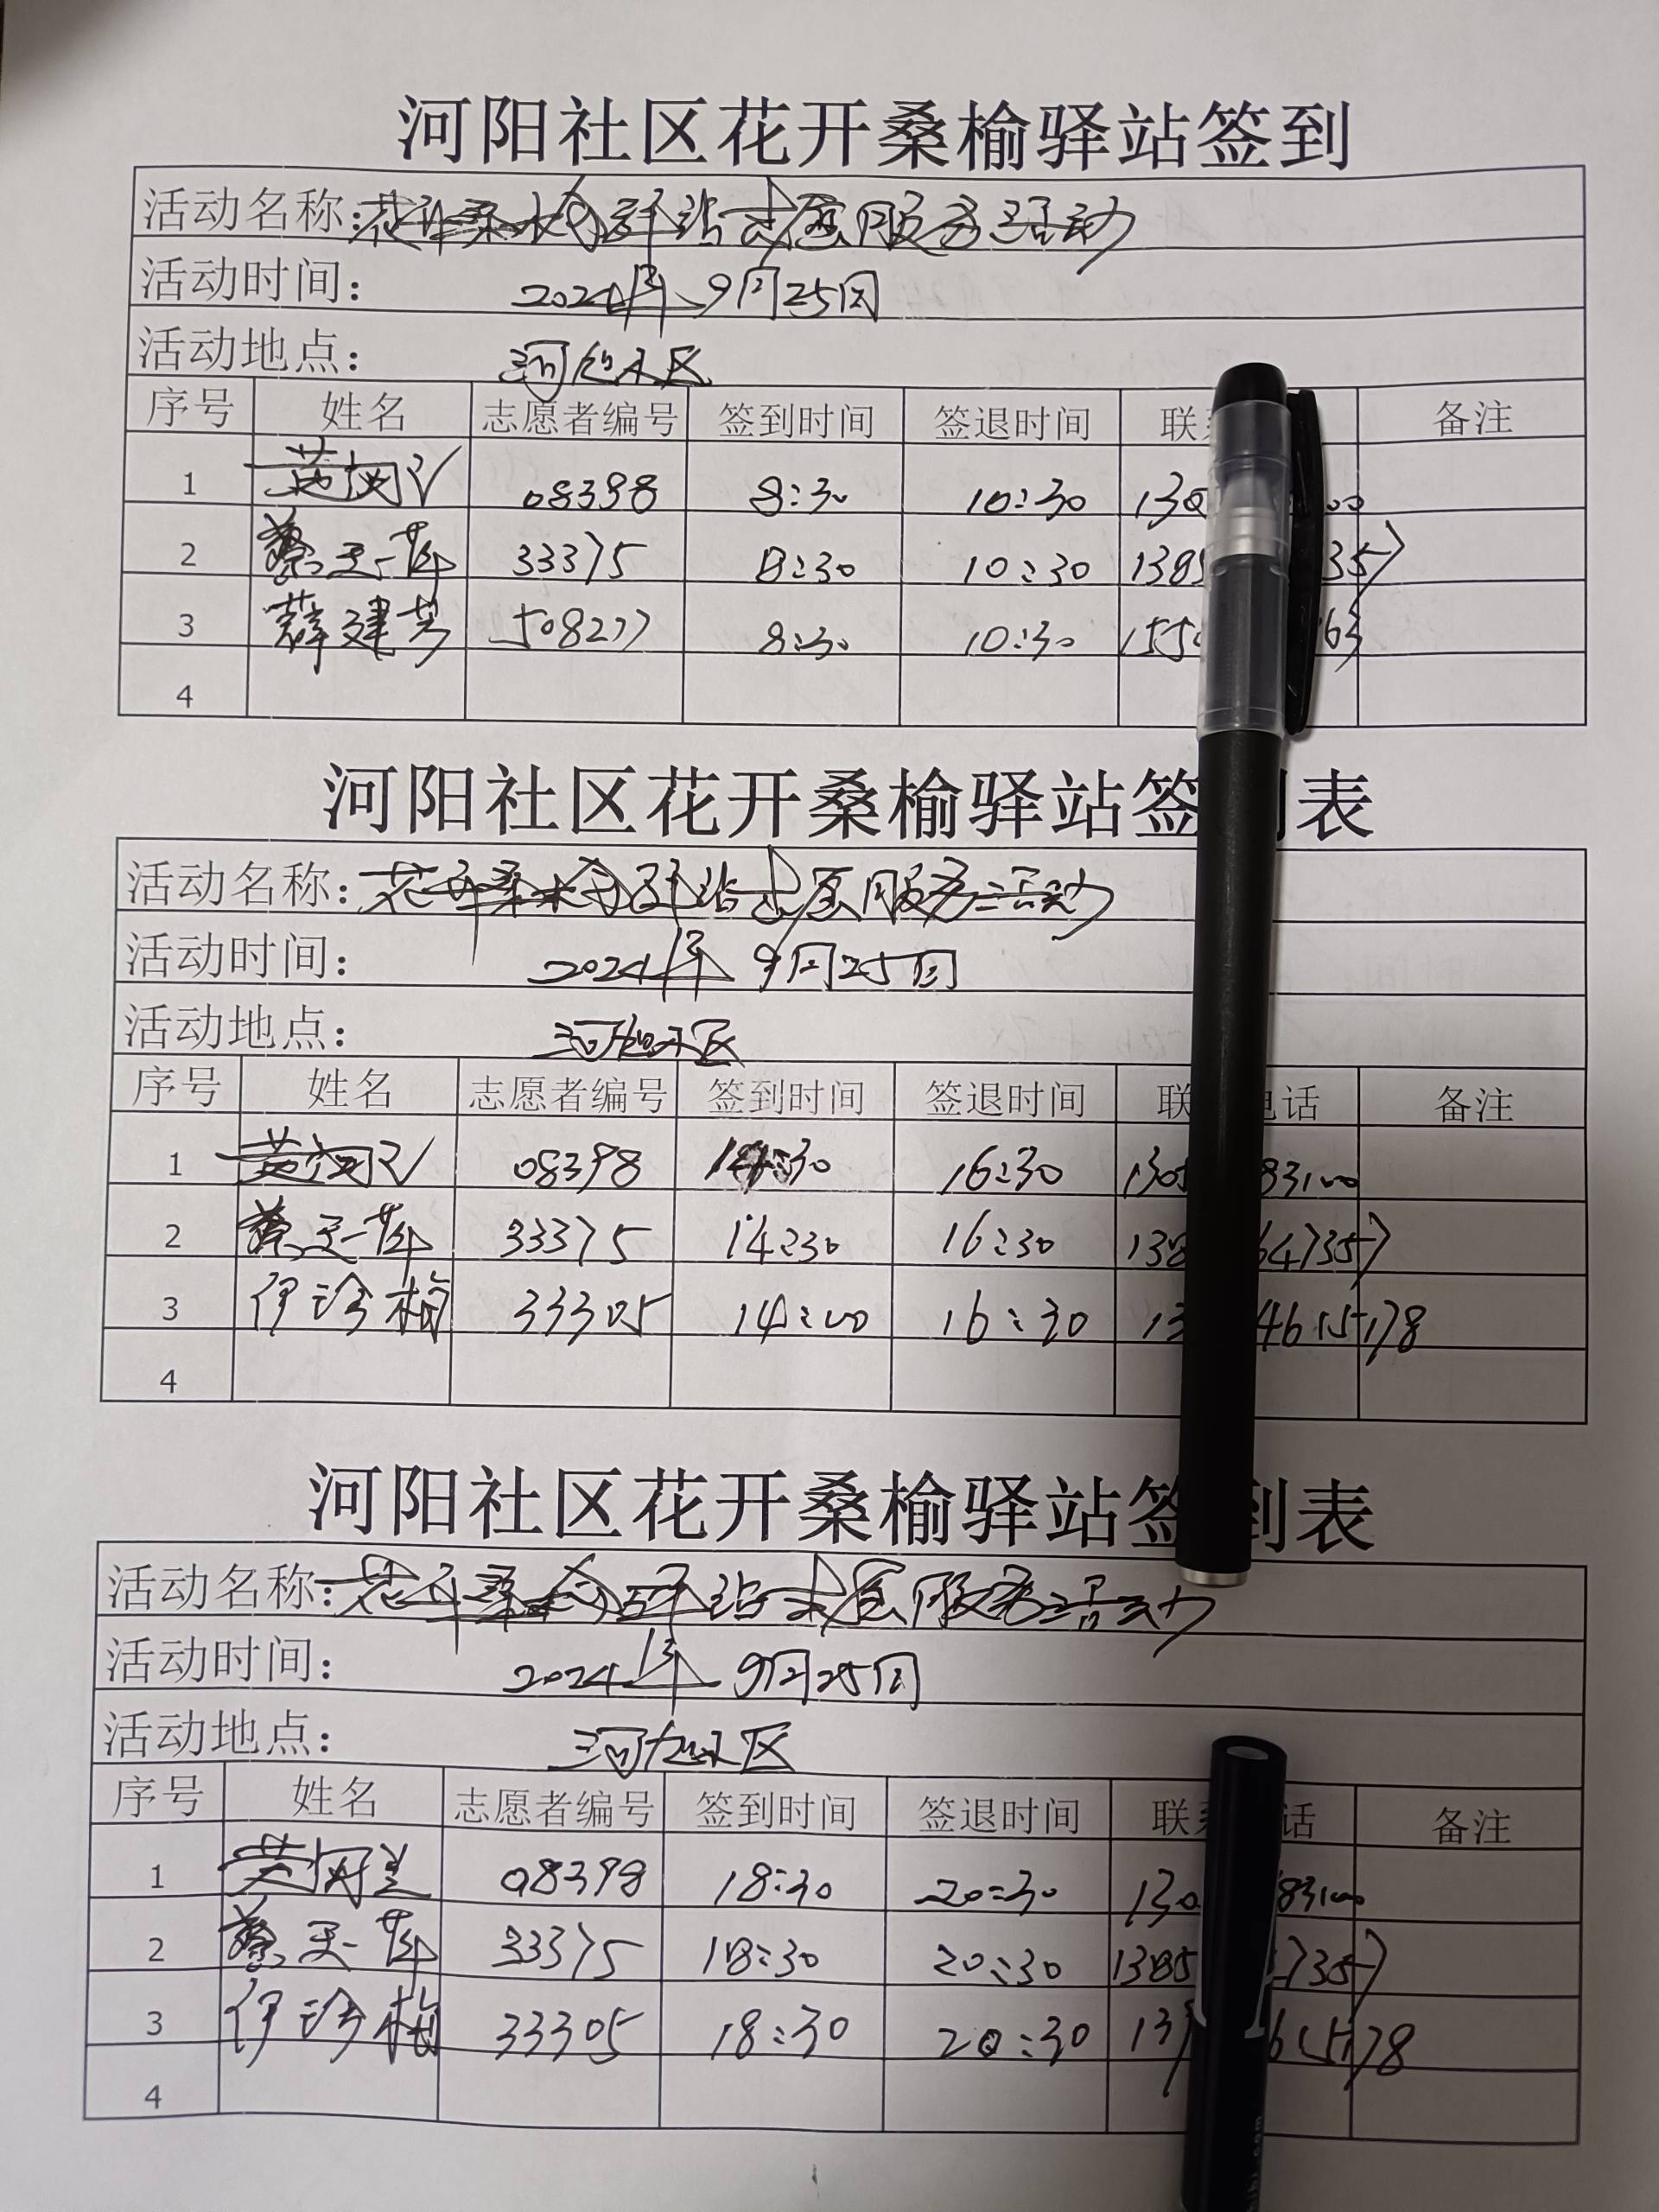 河阳社区花开桑榆驿站签到
活动名称：花开桑榆驿站志愿服务活动
活动时间： 2024年9月25日
活动地点： 河阳社区
序号 姓名 志愿者编号 签到时间 签退时间 联 备注
1 08398 8:30 10:30
2 33375 8:30 10:30
3 薛建芳 508277 8:30 10:30
4
河阳社区花开桑榆驿站签到表
活动名称：花开桑榆驿站志愿服务活动
活动时间： 2024年9月25日
活动地点： 河阳社区
序号 姓名 志愿者编号 签到时间 签退时间 联 电话 备注
1 08398 14:30 16:30
2 33375 14:30 16:30
3 伊珍梅 33305 14:00 16:30
4
河阳社区花开桑榆驿站签到表
活动名称：花开桑榆驿站志愿服务活动
活动时间： 2024年9月25日
活动地点： 河阳社区
序号 姓名 志愿者编号 签到时间 签退时间 联 话 备注
1 08398 18:30 20:30
2 33375 18:30 20:30
3 伊珍梅 33305 18:30 20:30
4